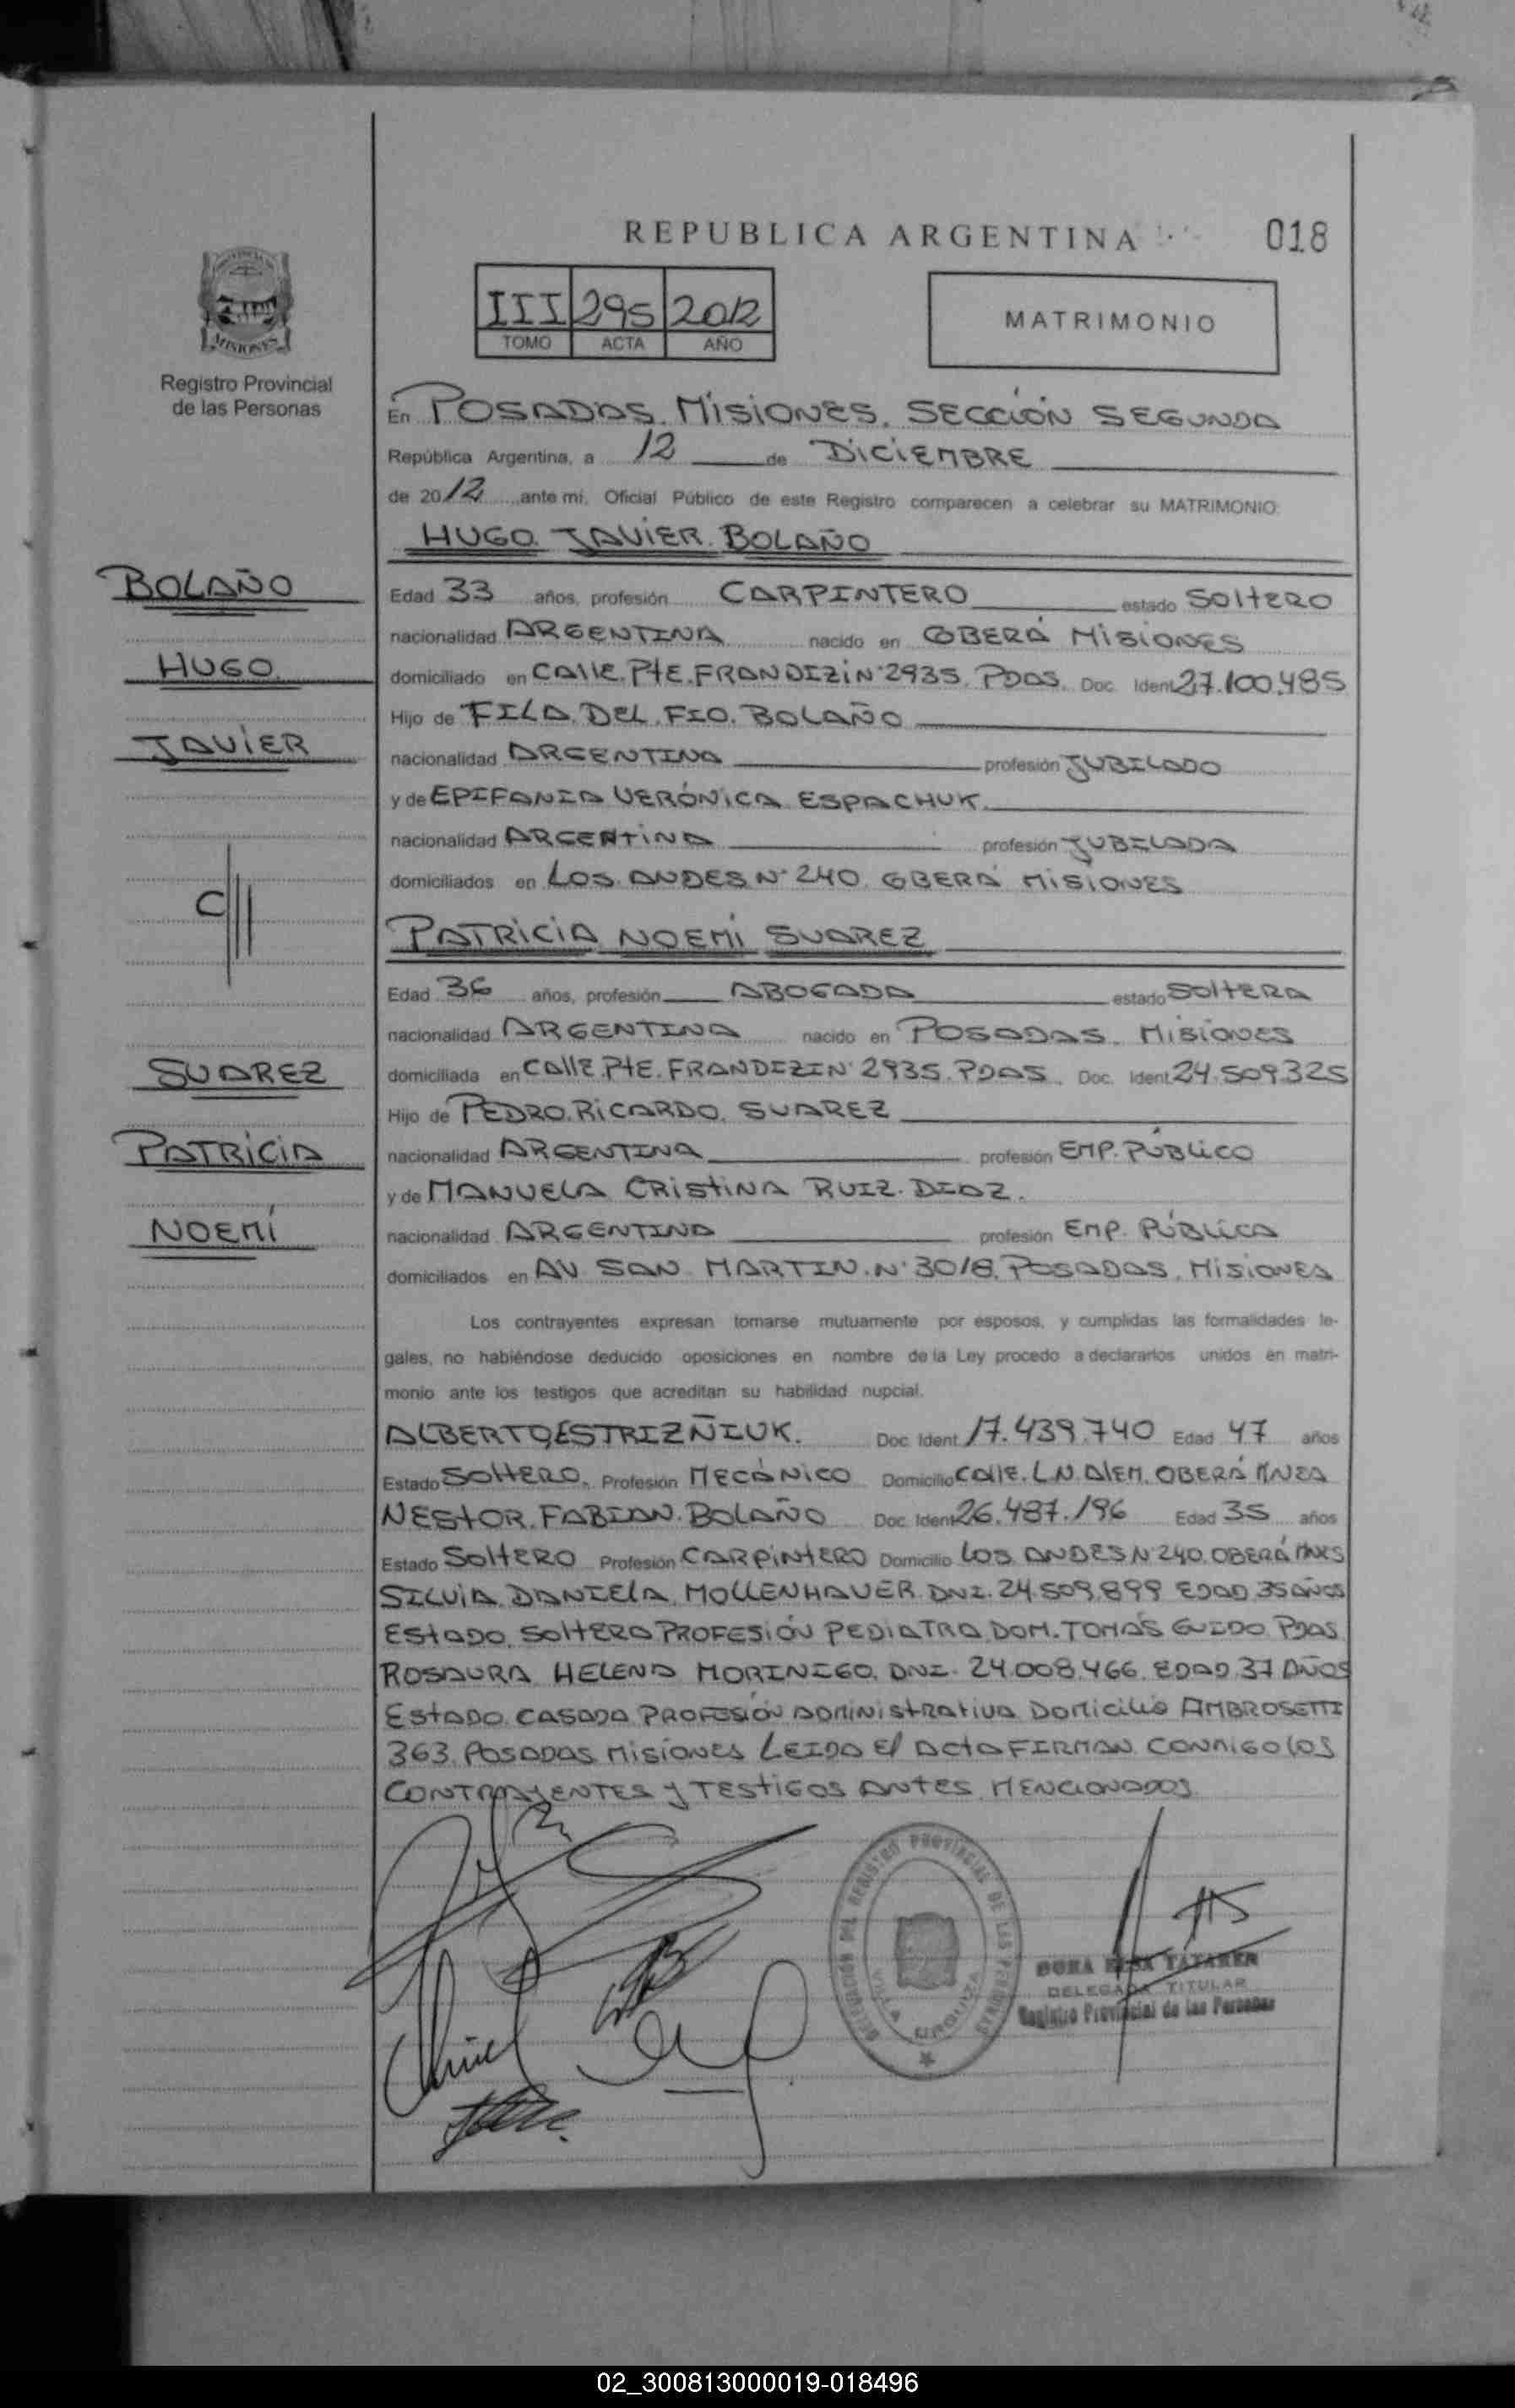 REPUBLICA ARGENTINA
018
MISIONES
Registro Provincial
de las Personas
III 295 2012
TOMO ACTA AÑO
MATRIMONIO
En POSADAS. MISIONES. SECCIÓN SEGUNDA
República Argentina, a 12 de DICIEMBRE
de 2012 ante mí, Oficial Público de este Registro comparecen a celebrar su MATRIMONIO:
HUGO JAVIER BOLAÑO
BOLAÑO
HUGO
JAVIER
Edad 33 años, profesión CARPINTERO estado SOLTERO
nacionalidad ARGENTINA nacido en OBERÁ MISIONES
domiciliado en CALLE. PTE. FRANDIZI N° 2935. PDAS. Doc. Ident 27.100.485
Hijo de FILA. DEL. FIO. BOLAÑO
nacionalidad ARGENTINA profesión JUBILADO
y de EPIFANIA VERÓNICA ESPACHUK.
nacionalidad ARGENTINA profesión JUBILADA
domiciliados en LOS. ANDES N° 240. OBERÁ MISIONES
PATRICIA NOEMÍ SUAREZ
Edad 36 años, profesión ABOGADA estado SOLTERA
nacionalidad ARGENTINA nacido en POSADAS. MISIONES
SUAREZ
PATRICIA
NOEMÍ
domiciliada en CALLE PTE. FRANDIZI N° 2935. PDAS. Doc. Ident. 24.509.325
Hijo de PEDRO. RICARDO. SUAREZ
nacionalidad ARGENTINA profesión EMP. PÚBLICO
y de MANUELA CRISTINA RUIZ. DIAZ.
nacionalidad ARGENTINA profesión EMP. PÚBLICA
domiciliados en AV. SAN MARTIN. N° 3018. POSADAS. MISIONES
Los contrayentes expresan tomarse mutuamente por esposos, y cumplidas las formalidades le-
gales, no habiéndose deducido oposiciones en nombre de la Ley procedo a declararlos unidos en matri-
monio ante los testigos que acreditan su habilidad nupcial.
ALBERTO ESTRIZÑIUK. Doc. Ident. 17.439.740 Edad 47 años
Estado SOLTERO. Profesión MECÁNICO Domicilio CALLE. L.N. ALEM. OBERÁ MNES
NESTOR. FABIAN. BOLAÑO Doc. Ident 26.487.196 Edad 35 años
Estado SOLTERO Profesión CARPINTERO Domicilio LOS ANDES N° 240. OBERÁ MNES
SILVIA. DANIELA. MOLLENHAUER. DNI. 24.509.899 EDAD 35 AÑOS
ESTADO. SOLTERA PROFESIÓN PEDIATRA. DOM. TOMÁS GUIDO. PDAS
ROSAURA HELENA MORINIGO. DNI. 24.008.466. EDAD 37 AÑOS
ESTADO. CASADA PROFESIÓN ADMINISTRATIVA DOMICILIO AMBROSETTI
363. POSADAS MISIONES LEIDA EL ACTA FIRMAN CONMIGO LOS
CONTRAYENTES Y TESTIGOS ANTES MENCIONADOS
DELEGACIÓN DEL REGISTRO PROVINCIAL DE LAS PERSONAS
VILLA URQUIZA
DELEGADA TITULAR
Registro Provincial de las Personas
02_300813000019-018496